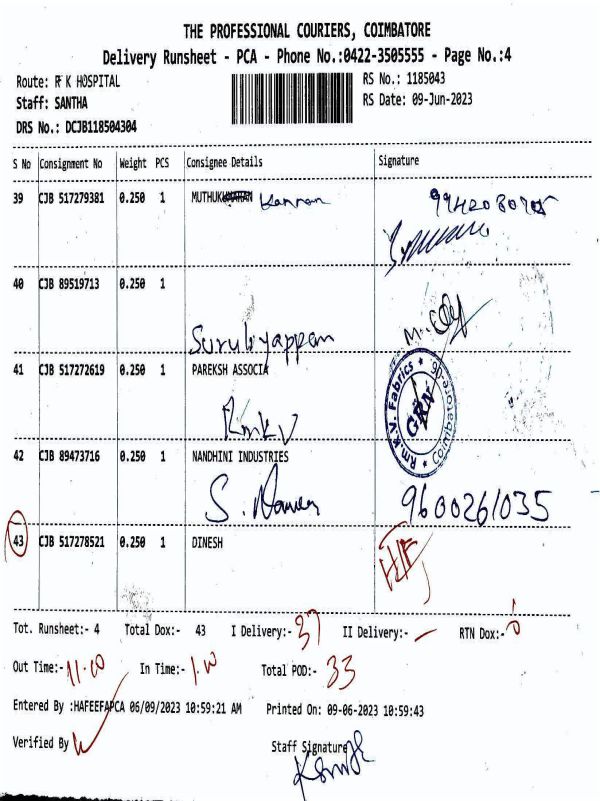 THE PROFESSIONAL COURIERS, COIMBATORE
Delivery Runsheet - PCA - Phone No.:0422-3505555 - Page No.:4
Route: R K HOSPITAL
RS No.: 1185043
Staff: SANTHA
RS Date: 09-Jun-2023
DRS No.: DCJB118504304
S No Consignment No Weight PCS Consignee Details Signature
39 CJB 517279381 0.250 1 MUTHUK Kannan
40 CJB 89519713 0.250 1
Surubiyappan
41 CJB 517272619 0.250 1 PAREKSH ASSOCIA
RmKV
Rm.K.V. Fabrics * Coimbatore *
GRN
42 CJB 89473716 0.250 1 NANDHINI INDUSTRIES
9600261035
43 CJB 517278521 0.250 1 DINESH
Tot. Runsheet:- 4 Total Dox:- 43 I Delivery:- 37 II Delivery:- - RTN Dox:-
Out Time:- 11.00 In Time:- Total POD:- 33
Entered By :HAFEEFAPCA 06/09/2023 10:59:21 AM Printed On: 09-06-2023 10:59:43
Verified By
Staff Signature